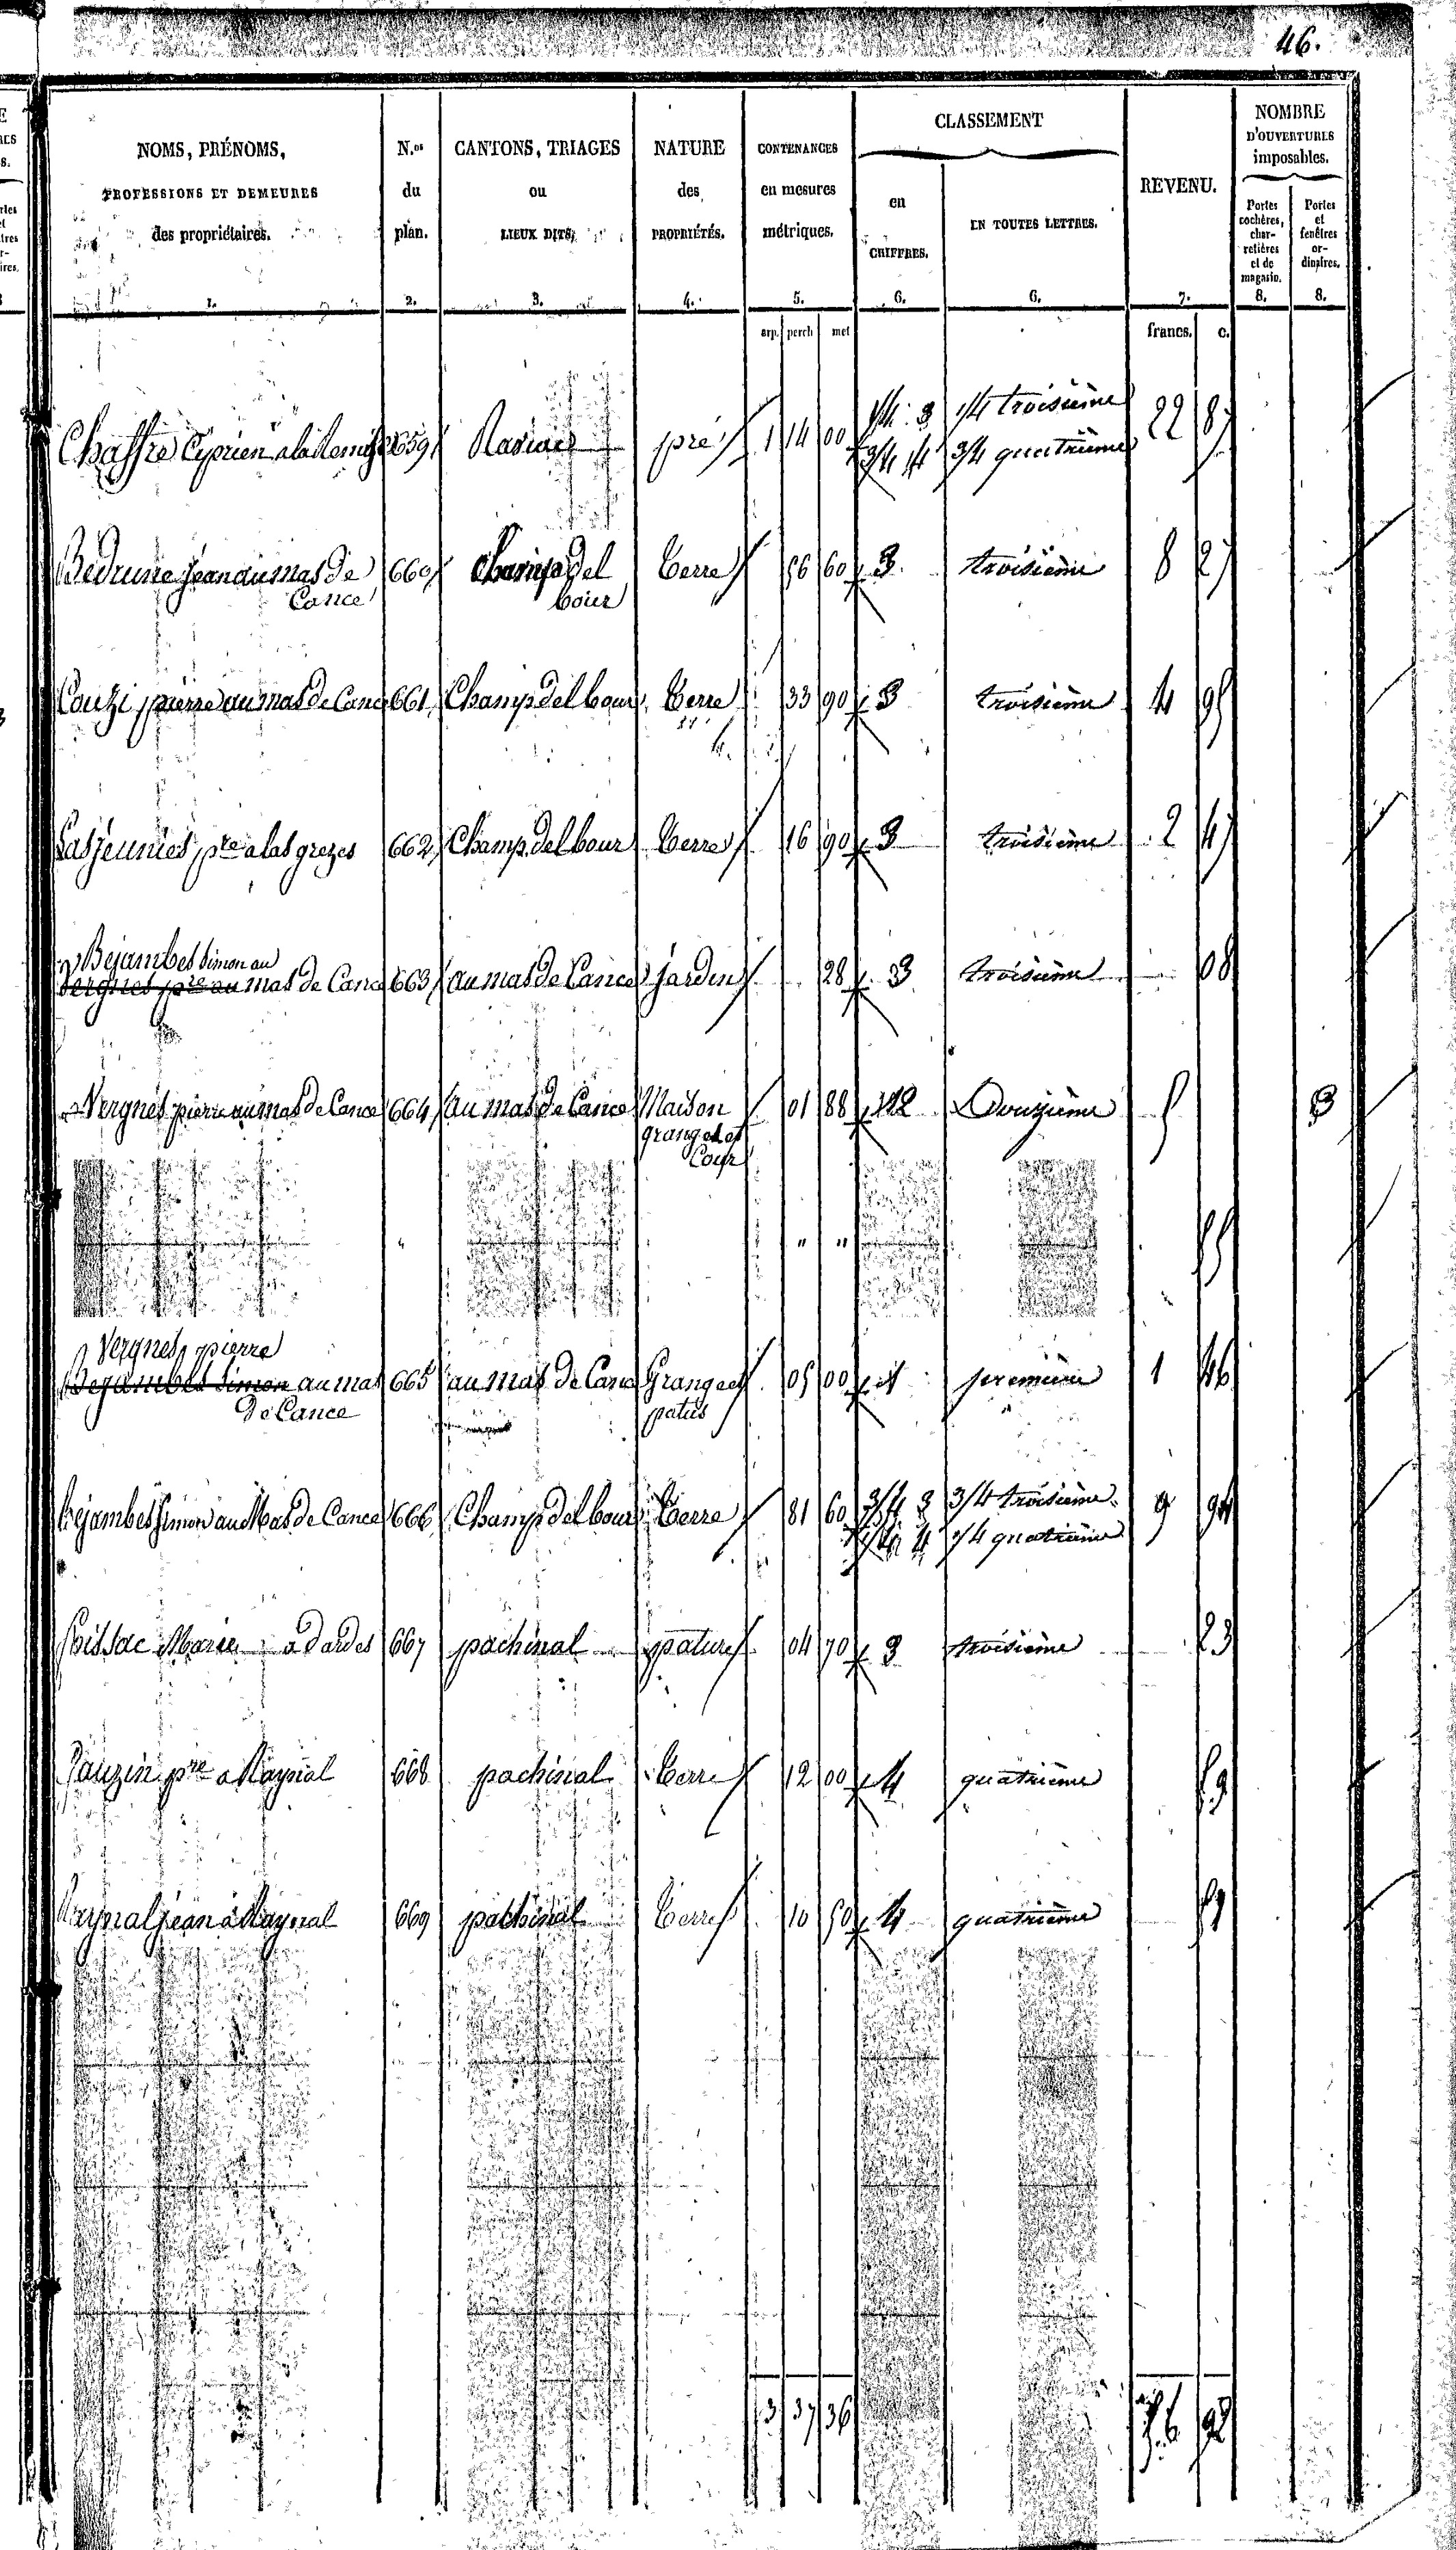 46.
NOMS, PRÉNOMS, PROFESSIONS ET DEMEURES des propriétaires. 1.
N.os du plan. 2.
CANTONS, TRIAGES ou LIEUX DITS. 3.
NATURE des PROPRIÉTÉS. 4.
CONTENANCES en mesures métriques. 5.
CLASSEMENT
en CHIFFRES. 6.
EN TOUTES LETTRES. 6.
REVENU. 7.
NOMBRE D'OUVERTURES imposables.
Portes cochères, charretières et de magasin. 8.
Portes et fenêtres ordinaires. 8.
arp. perch met francs. c.
Chaffre Cyprien 659 pré 1 14 00 1/4 3 1/4 troisième 22 8
3/4 4 3/4 quatrième
jean au mas de 660 Champ del terre 56 60 3 troisième 8 2
Cance bour
Couzi pierre au mas de Cance 661 Champ del bour terre 33 90 3 troisième 4 95
pre a las grezes 662 Champ del bour terre 16 90 3 troisième 2 4
Bejambes Simon au
Vergnes pre au mas de Cance 663 au mas de Cance jardin 28 3 troisième 08
Vergnes pierre au mas de Cance 664 au mas de Cance Maison 01 88 12 Douzième 5 3
grange et
Cour
" " "
Vergnes pierre
Bejambes Simon au mas 665 au mas de Cance Grange et 05 00 1 première 1 46
de Cance patus
Bejambes Simon au Mas de Cance 666 Champ del bour terre 81 60 3/4 3 3/4 troisième 9 94
1/4 4 1/4 quatrième
Marie a dardes 667 pachinal pature 04 70 3 troisième 23
Jauzin pre a Maynial 668 pachinal terre 12 00 4 quatrième
jean à 669 pachinal terre 10 50 4 quatrième
3 37 36